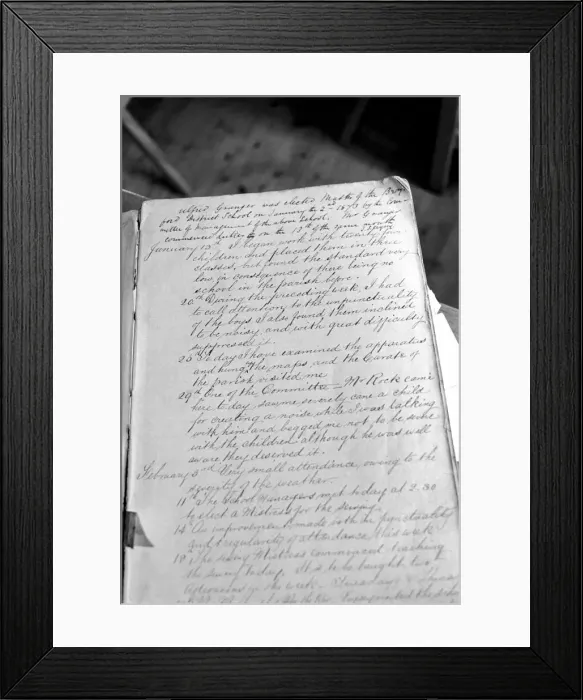 Alfred Granger was elected Master of the
District School on January the 2nd 1873 by the Com-
mittee of Management of the above School. Mr Granger
commenced duties on the 13th of the same month
January 13th I began work with twenty four
children and placed them in three
classes, but found the standard very
low, in consequence of there being no
school in the parish before.
20th During the preceding week, I had
to call attention to the unpunctuality
of the boys I also found them inclined
to be noisy and with great difficulty
suppressed it.
25th To day I have examined the apparatus
and hung the maps, and the Curate of
the parish visited me
29th One of the Committee - Mr Rock came
here to day, saw me severely cane a child
for creating a noise while I was talking
with him and begged me not to be severe
with the children although he was well
aware they deserved it.
February 3rd Very small attendance, owing to the
severity of the weather.
11th The School Managers met today at 2.30
to elect a Mistress for the Sewing.
14th An improvement made both in punctuality
and regularity of attendance this week
18th The Sewing Mistress commenced teaching
the Sewing today. It is to be taught two
afternoons in the week